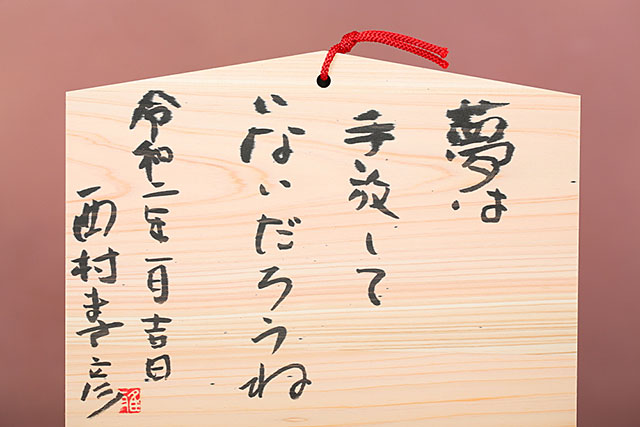 夢は
手放して
いないだろうね
令和二年一月吉日
西村まさ彦